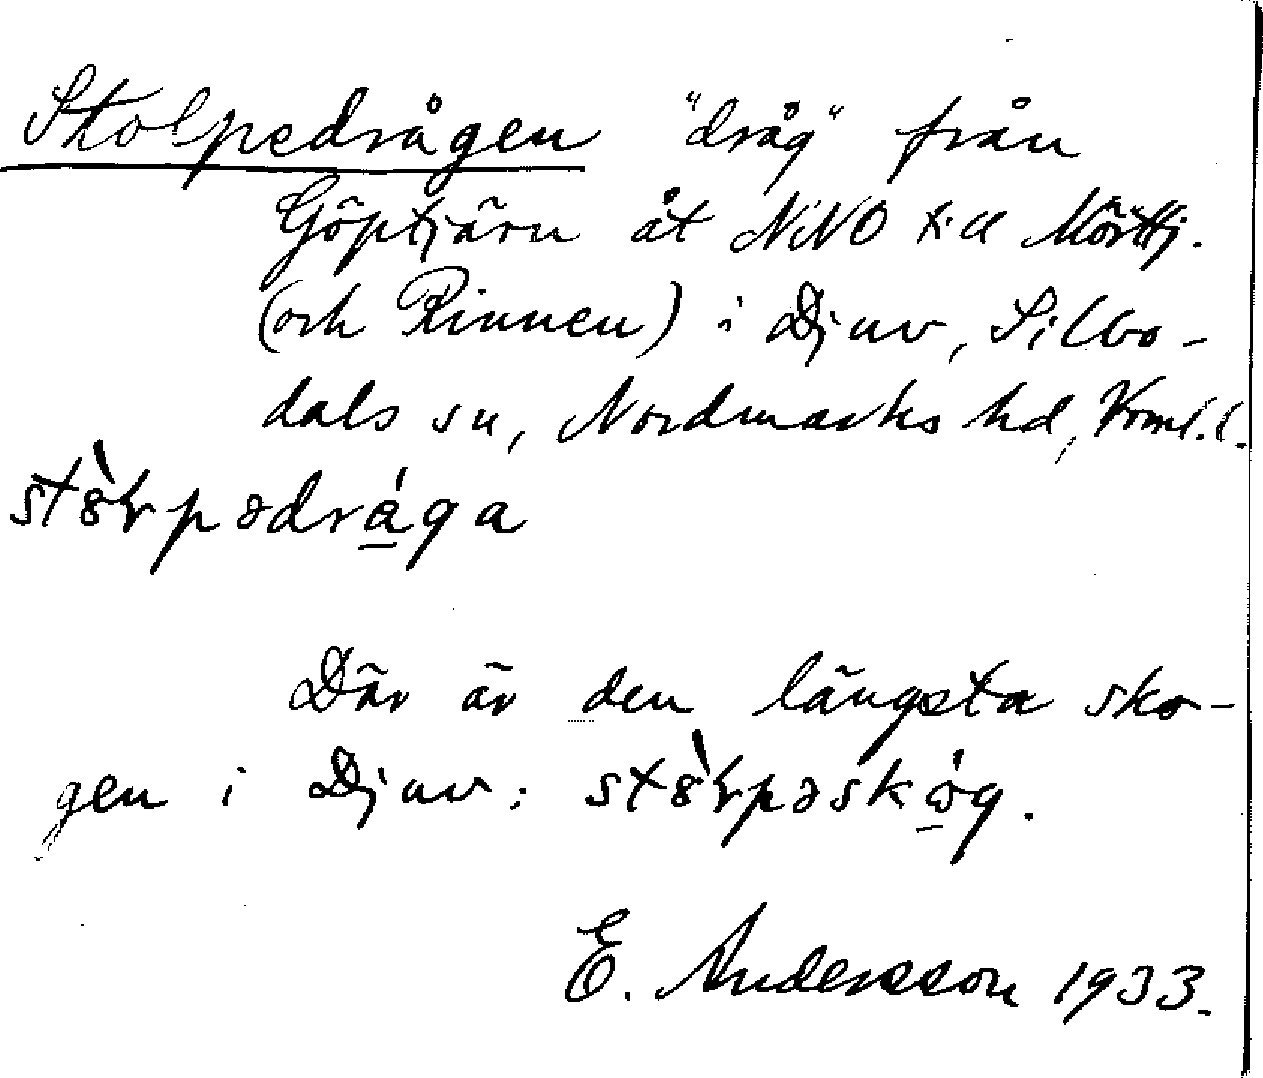 Stolpedrågen "dråg" från
Göptjärn åt NNO till Mörttj.
(och Rinnen) i Djuv, Silbo-
dals sn, Nordmarks hd, Vrml. l.
stȍɽpədrága
Där är den längsta sko-
gen i Djuv: stȍɽpəskóg.
E. Andersson 1933.